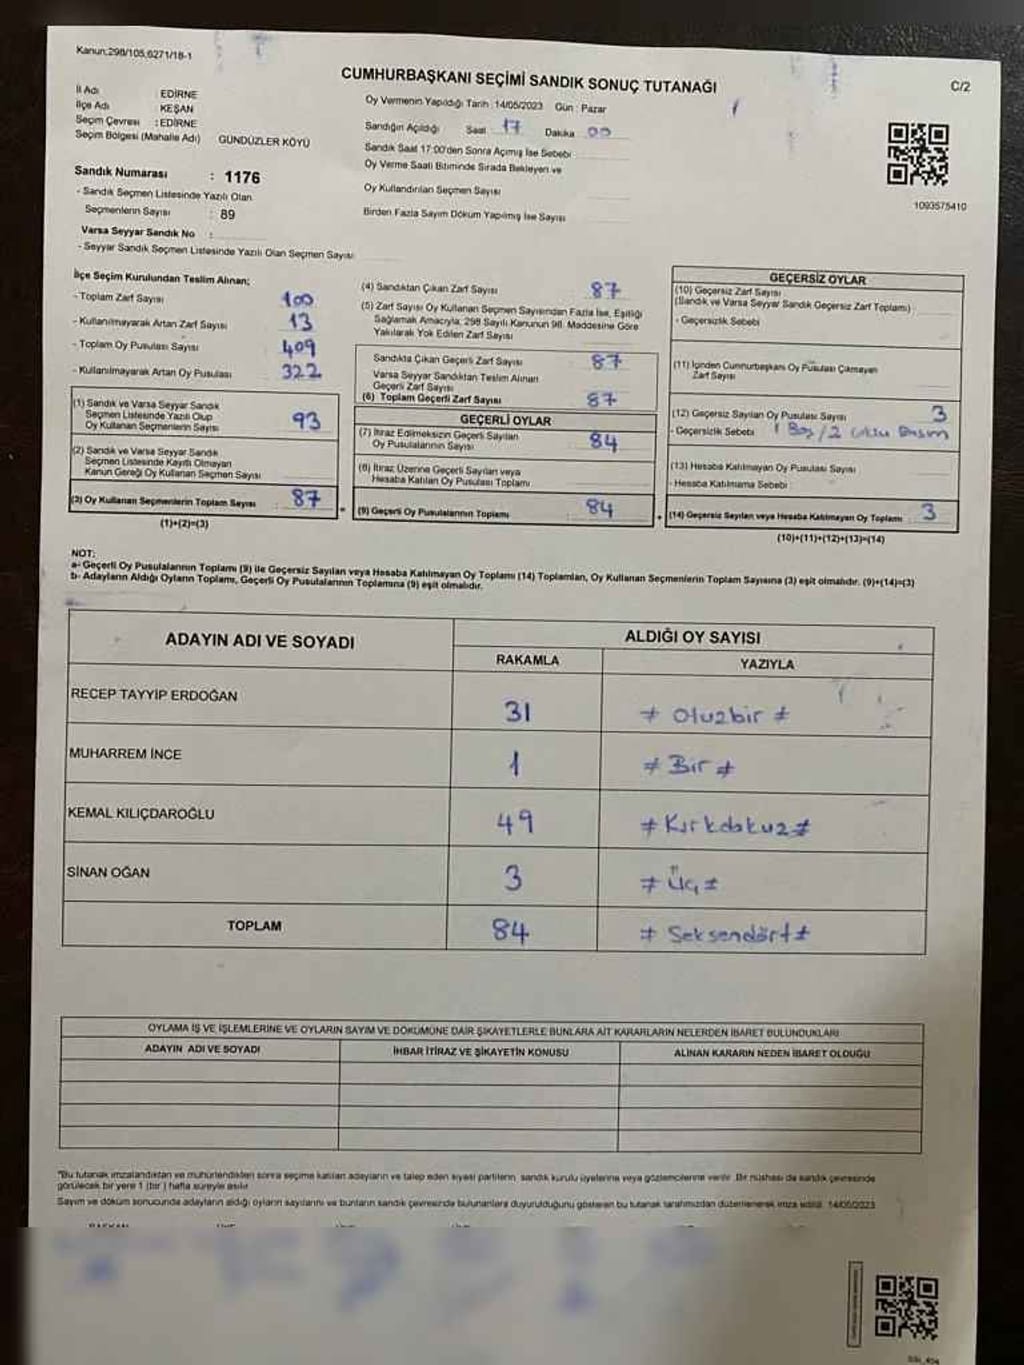 Kanun:298/105,6271/18-1
CUMHURBAŞKANI SEÇİMİ SANDIK SONUÇ TUTANAĞI
C/2
İl Adı EDİRNE
İlçe Adı KEŞAN
Seçim Çevresi : EDİRNE
Seçim Bölgesi (Mahalle Adı) GÜNDÜZLER KÖYÜ
Oy Vermenin Yapıldığı Tarih :14/05/2023 Gün : Pazar
Sandığın Açıldığı Saat 17 Dakika 00
Sandık Saat 17:00'den Sonra Açılmış İse Sebebi
Oy Verme Saati Bitiminde Sırada Bekleyen ve
Oy Kullandırılan Seçmen Sayısı
Birden Fazla Sayım Döküm Yapılmış İse Sayısı
1093575410
Sandık Numarası : 1176
- Sandık Seçmen Listesinde Yazılı Olan
Seçmenlerin Sayısı : 89
Varsa Seyyar Sandık No :
- Seyyar Sandık Seçmen Listesinde Yazılı Olan Seçmen Sayısı
İlçe Seçim Kurulundan Teslim Alınan;
- Toplam Zarf Sayısı 100
- Kullanılmayarak Artan Zarf Sayısı 13
- Toplam Oy Pusulası Sayısı 409
- Kullanılmayarak Artan Oy Pusulası 322
(1) Sandık ve Varsa Seyyar Sandık
Seçmen Listesinde Yazılı Olup
Oy Kullanan Seçmenlerin Sayısı 93
(2) Sandık ve Varsa Seyyar Sandık
Seçmen Listesinde Kayıtlı Olmayan
Kanun Gereği Oy Kullanan Seçmen Sayısı
(3) Oy Kullanan Seçmenlerin Toplam Sayısı : 87
(1)+(2)=(3)
(4) Sandıktan Çıkan Zarf Sayısı 87
(5) Zarf Sayısı Oy Kullanan Seçmen Sayısından Fazla İse, Eşitliği
Sağlamak Amacıyla, 298 Sayılı Kanunun 98. Maddesine Göre
Yakılarak Yok Edilen Zarf Sayısı
Sandıkta Çıkan Geçerli Zarf Sayısı 87
Varsa Seyyar Sandıktan Teslim Alınan
Geçerli Zarf Sayısı
(6) Toplam Geçerli Zarf Sayısı 87
GEÇERLİ OYLAR
(7) İtiraz Edilmeksizin Geçerli Sayılan
Oy Pusulalarının Sayısı 84
(8) İtiraz Üzerine Geçerli Sayılan veya
Hesaba Katılan Oy Pusulası Toplamı
(9) Geçerli Oy Pusulalarının Toplamı 84
GEÇERSİZ OYLAR
(10) Geçersiz Zarf Sayısı
(Sandık ve Varsa Seyyar Sandık Geçersiz Zarf Toplamı)
- Geçersizlik Sebebi
(11) İçinden Cumhurbaşkanı Oy Pusulası Çıkmayan
Zarf Sayısı
(12) Geçersiz Sayılan Oy Pusulası Sayısı 3
- Geçersizlik Sebebi 1 Boş/2
(13) Hesaba Katılmayan Oy Pusulası Sayısı
- Hesaba Katılmama Sebebi :
(14) Geçersiz Sayılan veya Hesaba Katılmayan Oy Toplamı 3
(10)+(11)+(12)+(13)=(14)
NOT:
a- Geçerli Oy Pusulalarının Toplamı (9) ile Geçersiz Sayılan veya Hesaba Katılmayan Oy Toplamı (14) Toplamları, Oy Kullanan Seçmenlerin Toplam Sayısına (3) eşit olmalıdır. (9)+(14)=(3)
b- Adayların Aldığı Oyların Toplamı, Geçerli Oy Pusulalarının Toplamına (9) eşit olmalıdır.
ADAYIN ADI VE SOYADI
ALDIĞI OY SAYISI
RAKAMLA YAZIYLA
RECEP TAYYİP ERDOĞAN 31 # Otuzbir #
MUHARREM İNCE 1 # Bir #
KEMAL KILIÇDAROĞLU 49 # Kırkdokuz #
SİNAN OĞAN 3 # Üç #
TOPLAM 84 # Seksendört #
OYLAMA İŞ VE İŞLEMLERİNE VE OYLARIN SAYIM VE DÖKÜMÜNE DAİR ŞİKAYETLERLE BUNLARA AİT KARARLARIN NELERDEN İBARET BULUNDUKLARI
ADAYIN ADI VE SOYADI İHBAR İTİRAZ VE ŞİKAYETİN KONUSU ALINAN KARARIN NEDEN İBARET OLDUĞU
*Bu tutanak imzalandıktan ve mühürlendikten sonra seçime katılan adayların ve talep eden siyasi partilerin, sandık kurulu üyelerine veya gözlemcilerine verilir. Bir nüshası da sandık çevresinde
görülecek bir yere 1 (bir) hafta süreyle asılır.
Sayım ve döküm sonucunda adayların aldığı oyların sayılarını ve bunların sandık çevresinde bulunanlara duyurulduğunu gösteren bu tutanak tarafımızdan düzenlenerek imza edildi. 14/05/2023